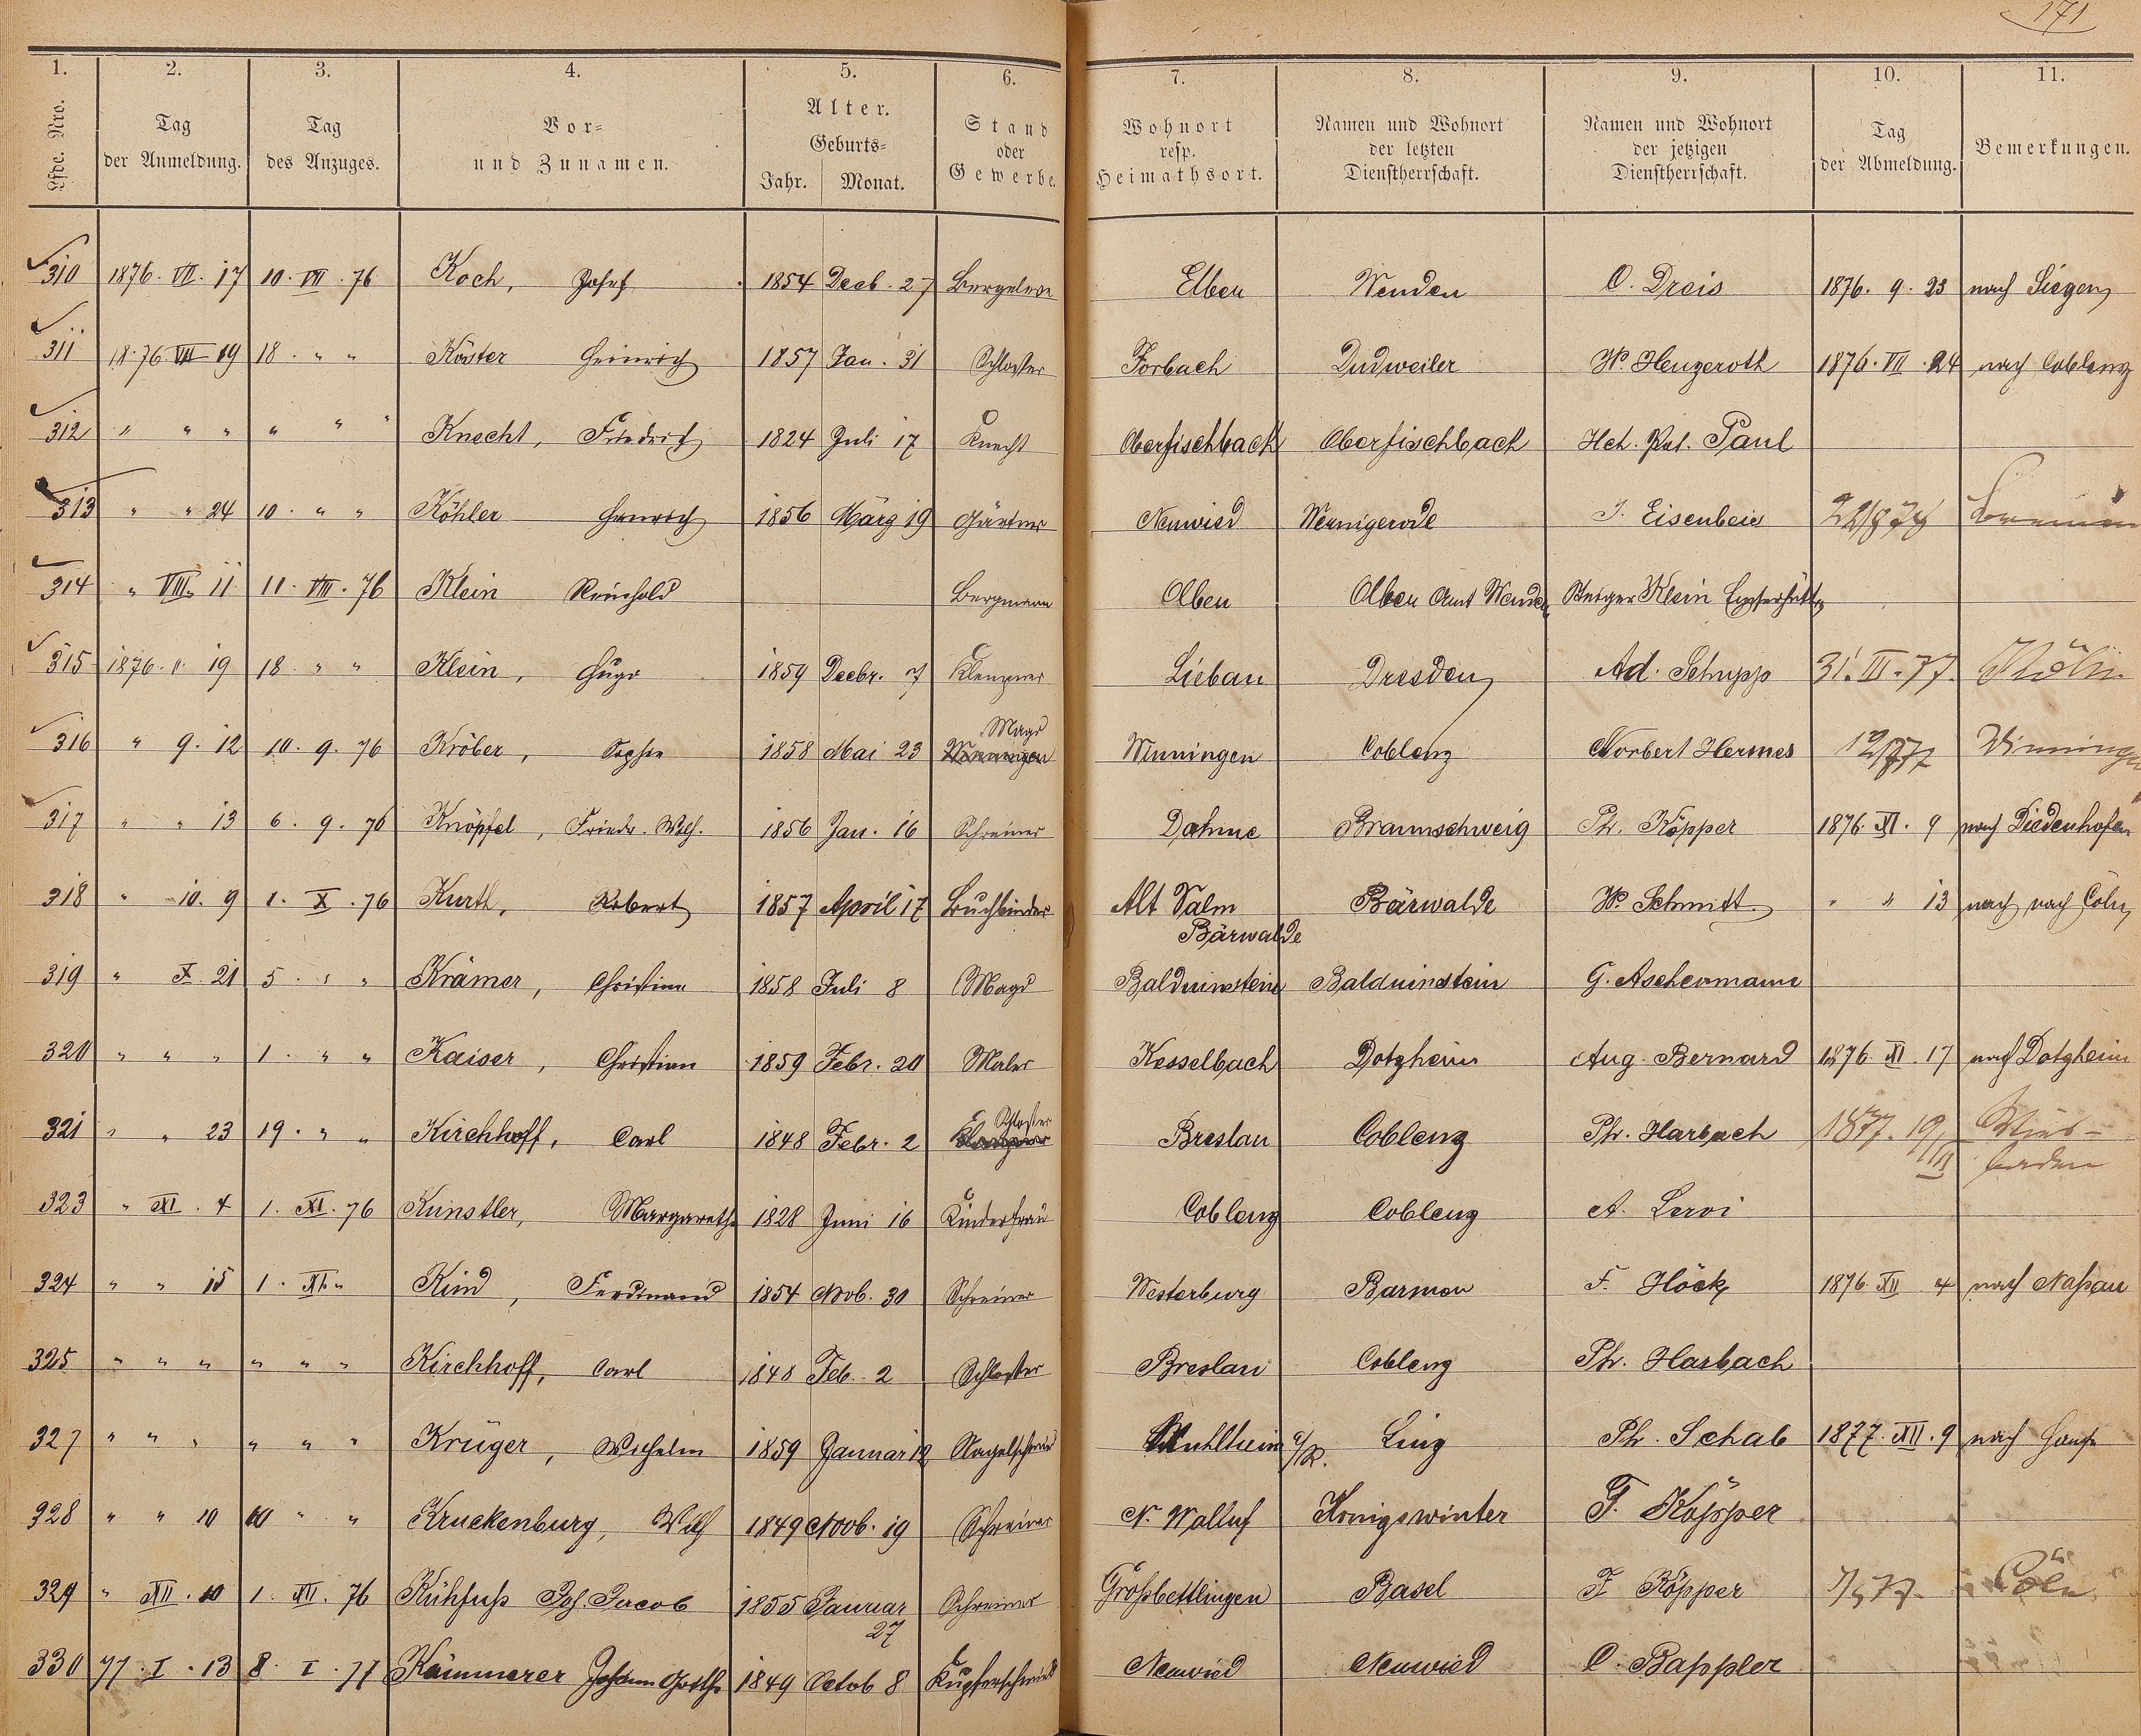 171
1. 2. 3. 4. 5. 6. 7. 8. 9. 10. 11.
Lfde. Nro. Tag der Anmeldung. Tag des Anzuges. Vor- und Zunamen. Alter. Geburts- Jahr. Monat. Stand oder Gewerbe. Wohnort resp. Heimathsort. Namen und Wohnort der letzten Dienstherrschaft. Namen und Wohnort der jetzigen Dienstherrschaft. Tag der Abmeldung. Bemerkungen.
310 1876. VII. 17 10. VII. 76 Koch, Josef 1854 Decb. 27 Bergeleve Elben Wenden O. Dreis 1876. 9. 23 nach Siegen
311 18.76 VII 19 18. " " Köster Heinrich 1857 Jan. 31 Schlosser Forbach Dudweiler W. Hengeroth 1876. VII. 24 nach Coblenz
312 " " " " " " Knecht, Friedrich 1824 Juli 17 Knecht Oberfischbach Oberfischbach Hch. Pet. Paul
313 " " 24 10. " " Köhler Heinrich 1856 März 19 Gärtner Neuwied Wernigerode J. Eisenbeis
314 " VIII. 11 11. VIII. 76 Klein Reinhold Bergmann Olben Olben Amt Wenden Steiger Klein Emserhütte
315 1876. " 19 18. " " Klein, Hugo 1859 Decbr. 7 Klempner Liebau Dresden Ad. Schupp 31. III. 77. Köln
316 " 9. 12 10. 9. 76 Kröber, Sophie 1858 Mai 23 Magd Winningen Coblenz Norbert Hermes Winningen
317 " " 13 6. 9. 76 Knöpfel, Friedr. Wilh. 1856 Jan. 16 Schreiner Dahme Braunschweig Ph. Köpper 1876. XI. 9 nach Diedenhofen
318 " 10. 9 1. X. 76 Kurth, Robert 1857 April 17 Buchbinder Alt Valm Bärwalde Bärwalde W. Schmitt " " 13 nach nach Cöln
319 " X. 21 5. " " Krämer, Christine 1858 Juli 8 Magd Balduinstein Balduinstein G. Aschermann
320 " " " 1. " " Kaiser, Christian 1859 Febr. 20 Maler Kesselbach Dotzheim Aug. Bernard 1876. XI. 17 nach Dotzheim
321 " " 23 19. " " Kirchhoff, Carl 1848 Febr. 2 Schlosser Breslau Coblenz Ph. Harbach 1877. 19/III Wiesbaden
323 " XI. 4 1. XI. 76 Künstler, Margarethe 1828 Juni 16 Kinderfrau Coblenz Coblenz A. Leroi
324 " " 15 1. XI. " Kind, Ferdinand 1854 Nob. 30 Schreiner Westerburg Barmen F. Höck 1876 XII 4 nach Nassau
325 " " " " " " Kirchhoff, Carl 1848 Feb. 2 Schlosser Breslau Coblenz Ph. Harbach
327 " " " " " " Krüger, Wilhelm 1859 Januar 12 Nagelschmied Mühlheim a/R. Linz Ph. Schab 1877. XII. 9 nach Hause
328 " " 10 10 " " Kruckenburg, Wilh 1849 Novb. 19 Schreiner N. Walluf Königswinter F. Köpper
329 " XII. 10 1. XII. 76 Kühfuss Joh. Jacob 1855 Januar 27 Schreiner Grossbettlingen Basel F Köpper 7/5 77. Cöln
330 77. I. 13 8. I. 77 Kämmerer Johann Gotth. 1849 Octob 8 Kupferschmied Neuwied Neuwied C. Bappler